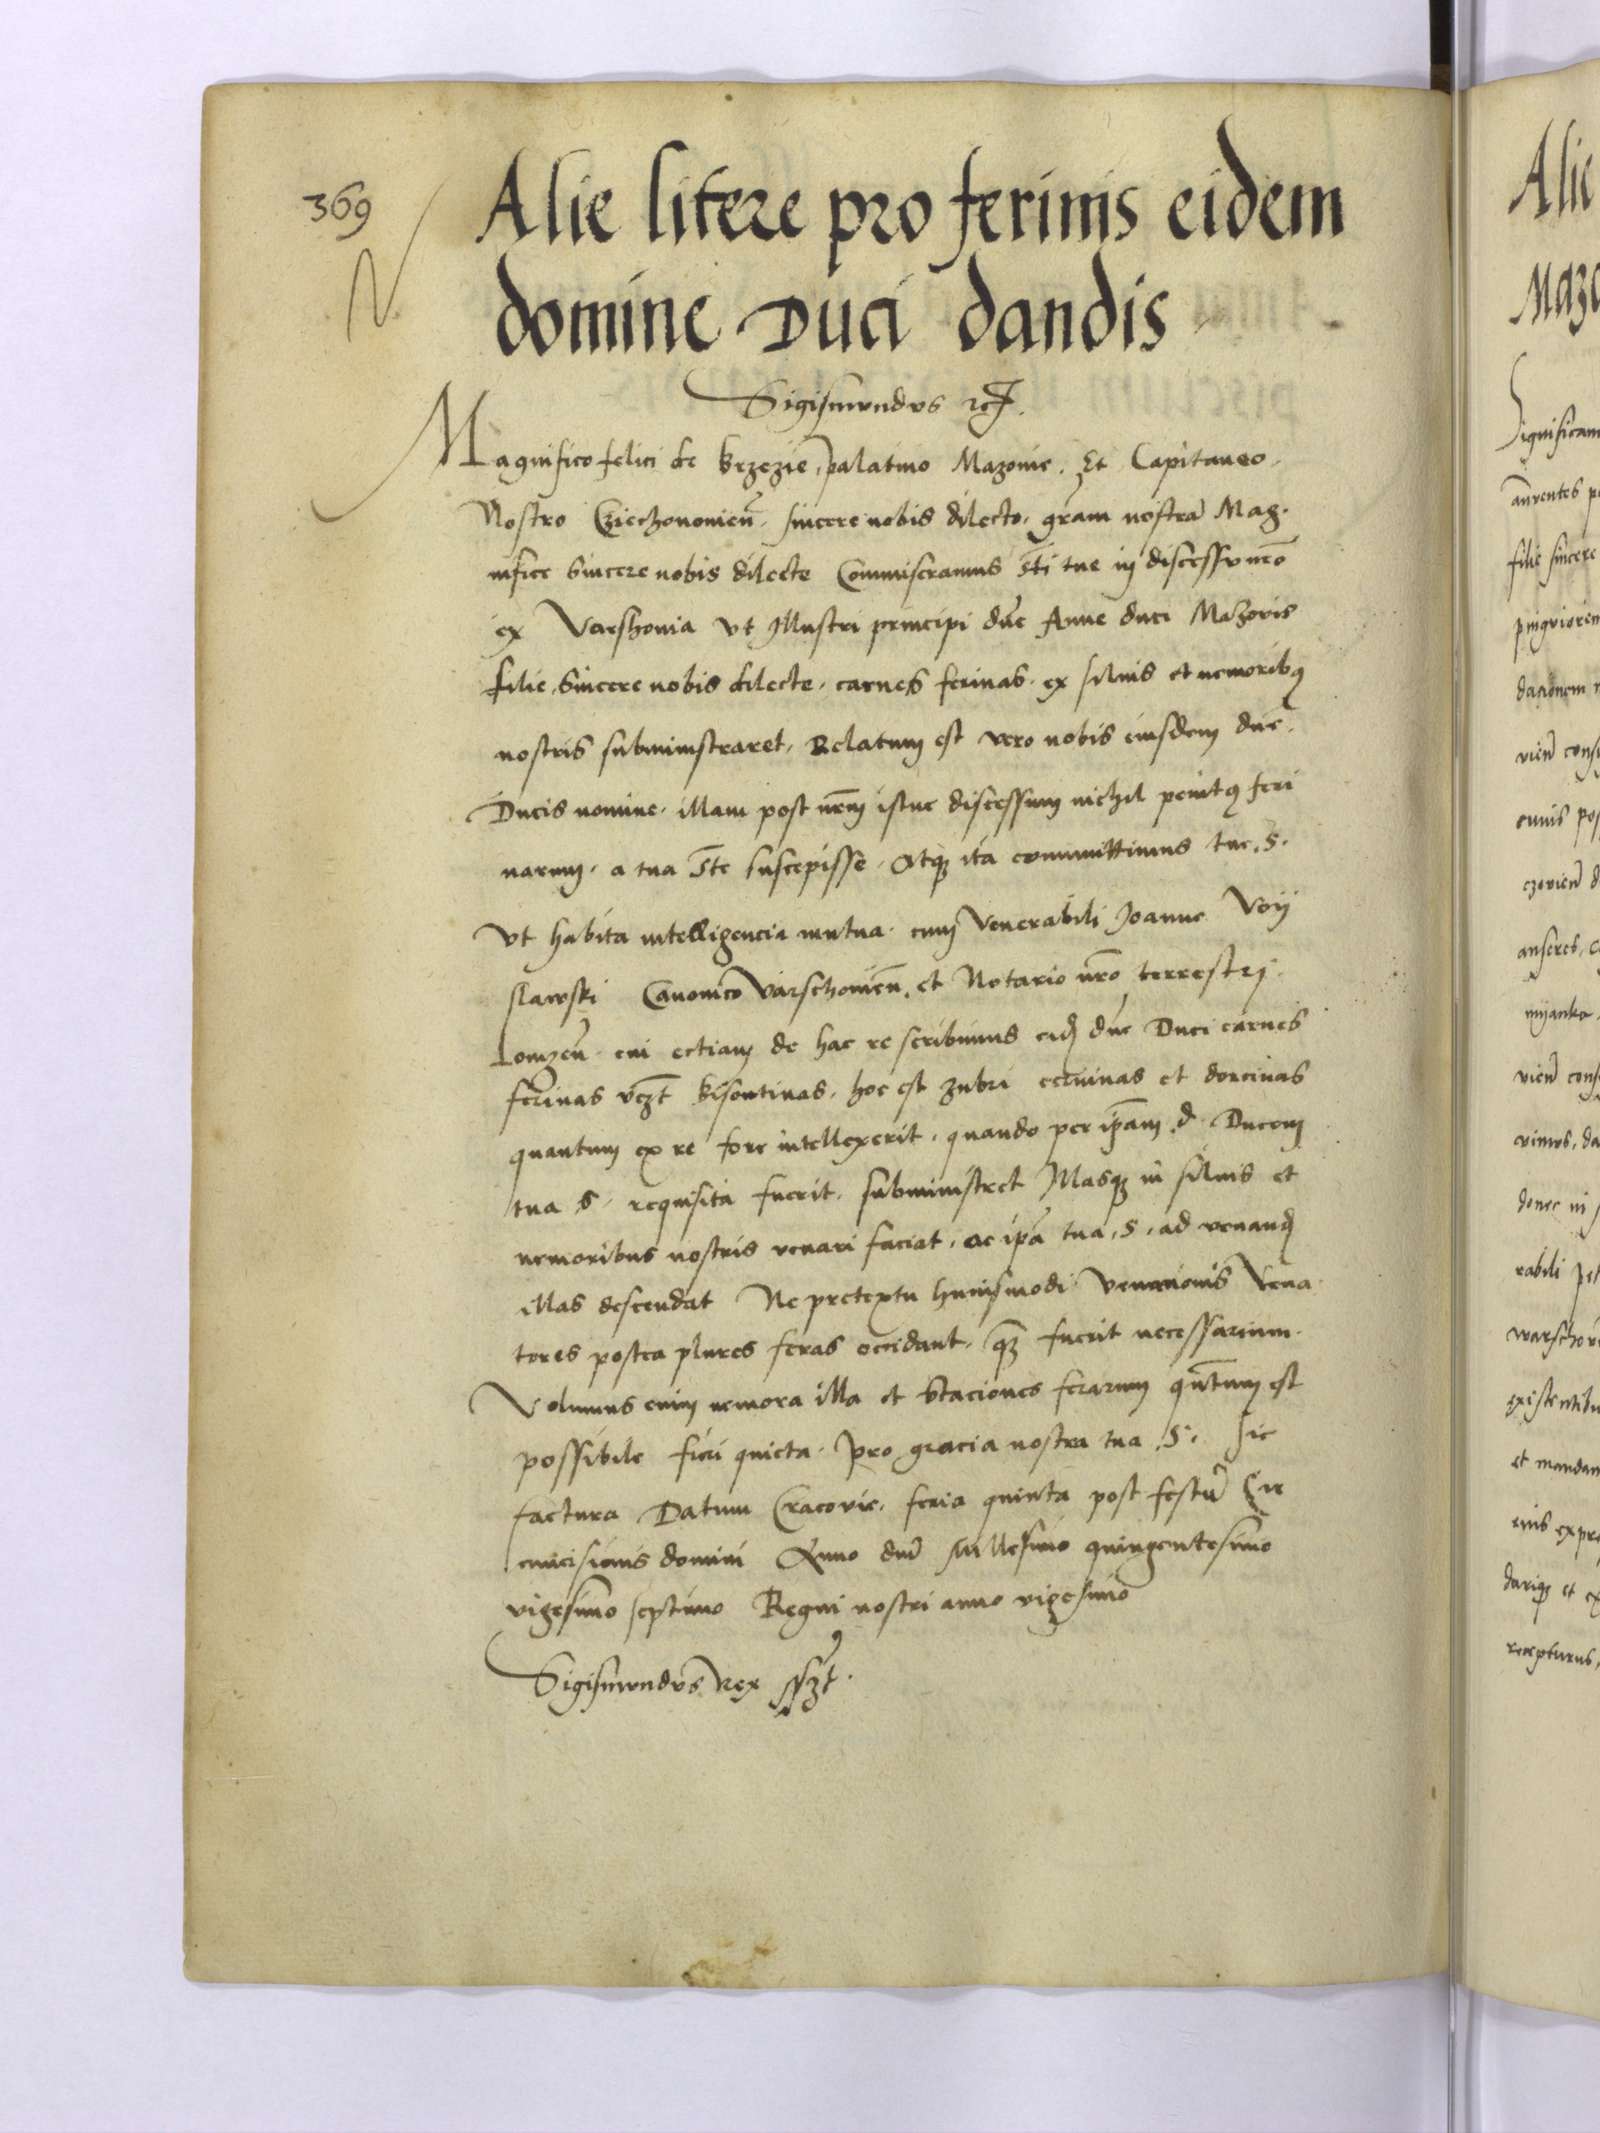 369
N
Alie litere pro ferinis eidem
domine Duci dandis
Sigismundus etc.
Magnifico felici de brzezie, palatino Mazovie. Et Capitaneo
Nostro Cziechonovien̄. sincere nobis dilecto. grām nostrā Mag-
nifice Sincere nobis dilecte Commiseramus S̄ti tue in discessu nr̄o
ex Varshovia Vt Illustri principi dn̄e Anne duci Mazovis
filie Sincere nobis dilecte. carnes ferinas. ex siluis et nemoribꝰ
nostris subministraret. Relatum est vero nobis eiusdem dn̄e.
Ducis nomine. illam post nr̄m istuc discessum nichil penitꝰ feri
narum. a tua S̄te suscepisse. Atqꝫ ita committimus tue. S.
Vt habita intelligencia mutua. cum Venerabili Joanne Voy
slawski Canonico Varschovien̄. et Notario nr̄o terrestrj.
Lomzen̄. cui ectiam de hac re scribimus eid dn̄e Duci carnes
ferinas vꝫt bisontinas. hoc est zubri cervinas et dorcinas
quantum ex re fore intellexerit. quando per ip̄am. d. Ducem
tua S. requisita fuerit. subministret Illasqꝫ in siluis et
nemoribus nostris venari faciat. ac ip̄a tua. S. ad venand
illas descendat Ne pretextu huiusmodi venationis Vena
tores postea plures feras occidant. qꝫ fuerit necessarium.
Volumus enim nemora illa et staciones ferarum qn̄tum est
possibile fieri quieta. pro gracia nostra tua. S. sic
factura Datum Cracovie. feria quinta post festū Cir
cumcisionis domini Anno dnī Millesimo quingentesimo
vigesimo septimo Regni nostri anno vigesimo
Sigismundus Rex sszt.
Alie
Mazo
Significam
filie sincere
pinguiorem
dationem
vien̄ cons
anseres, c
vien̄ cons
donec in
rabili pet
warschov
existentibu
et mandam
eius expre
dariqꝫ et ex
recepturus,